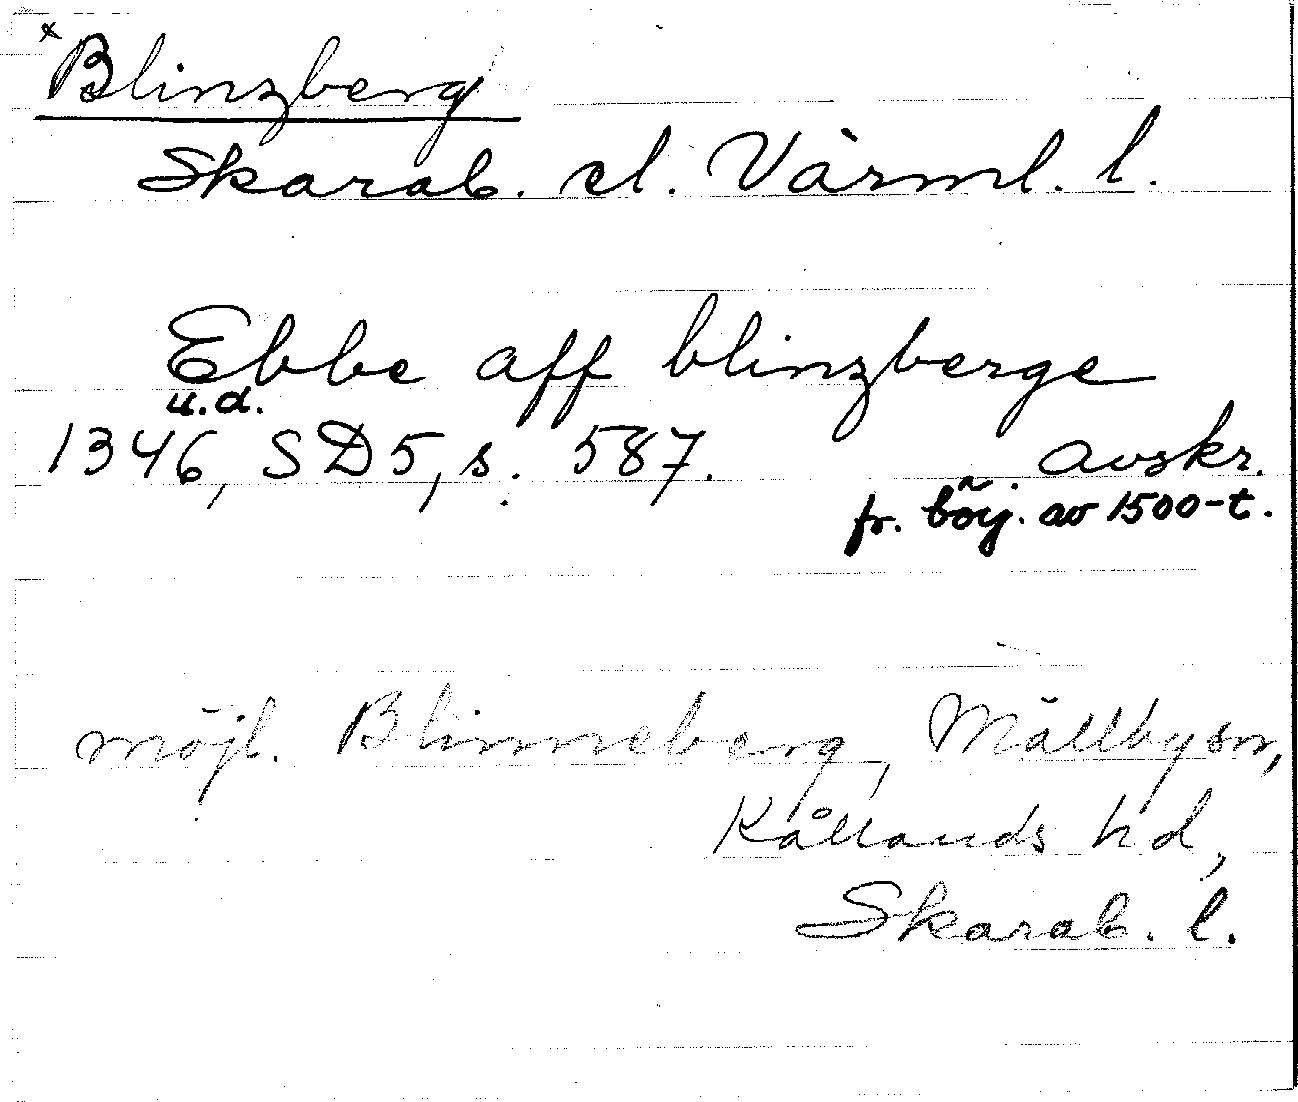 x Blinzberg
Skarab. el. Värml. l.
Ebbe aff blinzberge
u.d.
1346, SD5, s. 587. avskr.
fr. börj. av 1500-t.
möjl. Blinneberg, Mällby sn,
Kållands hd,
Skarab. l.